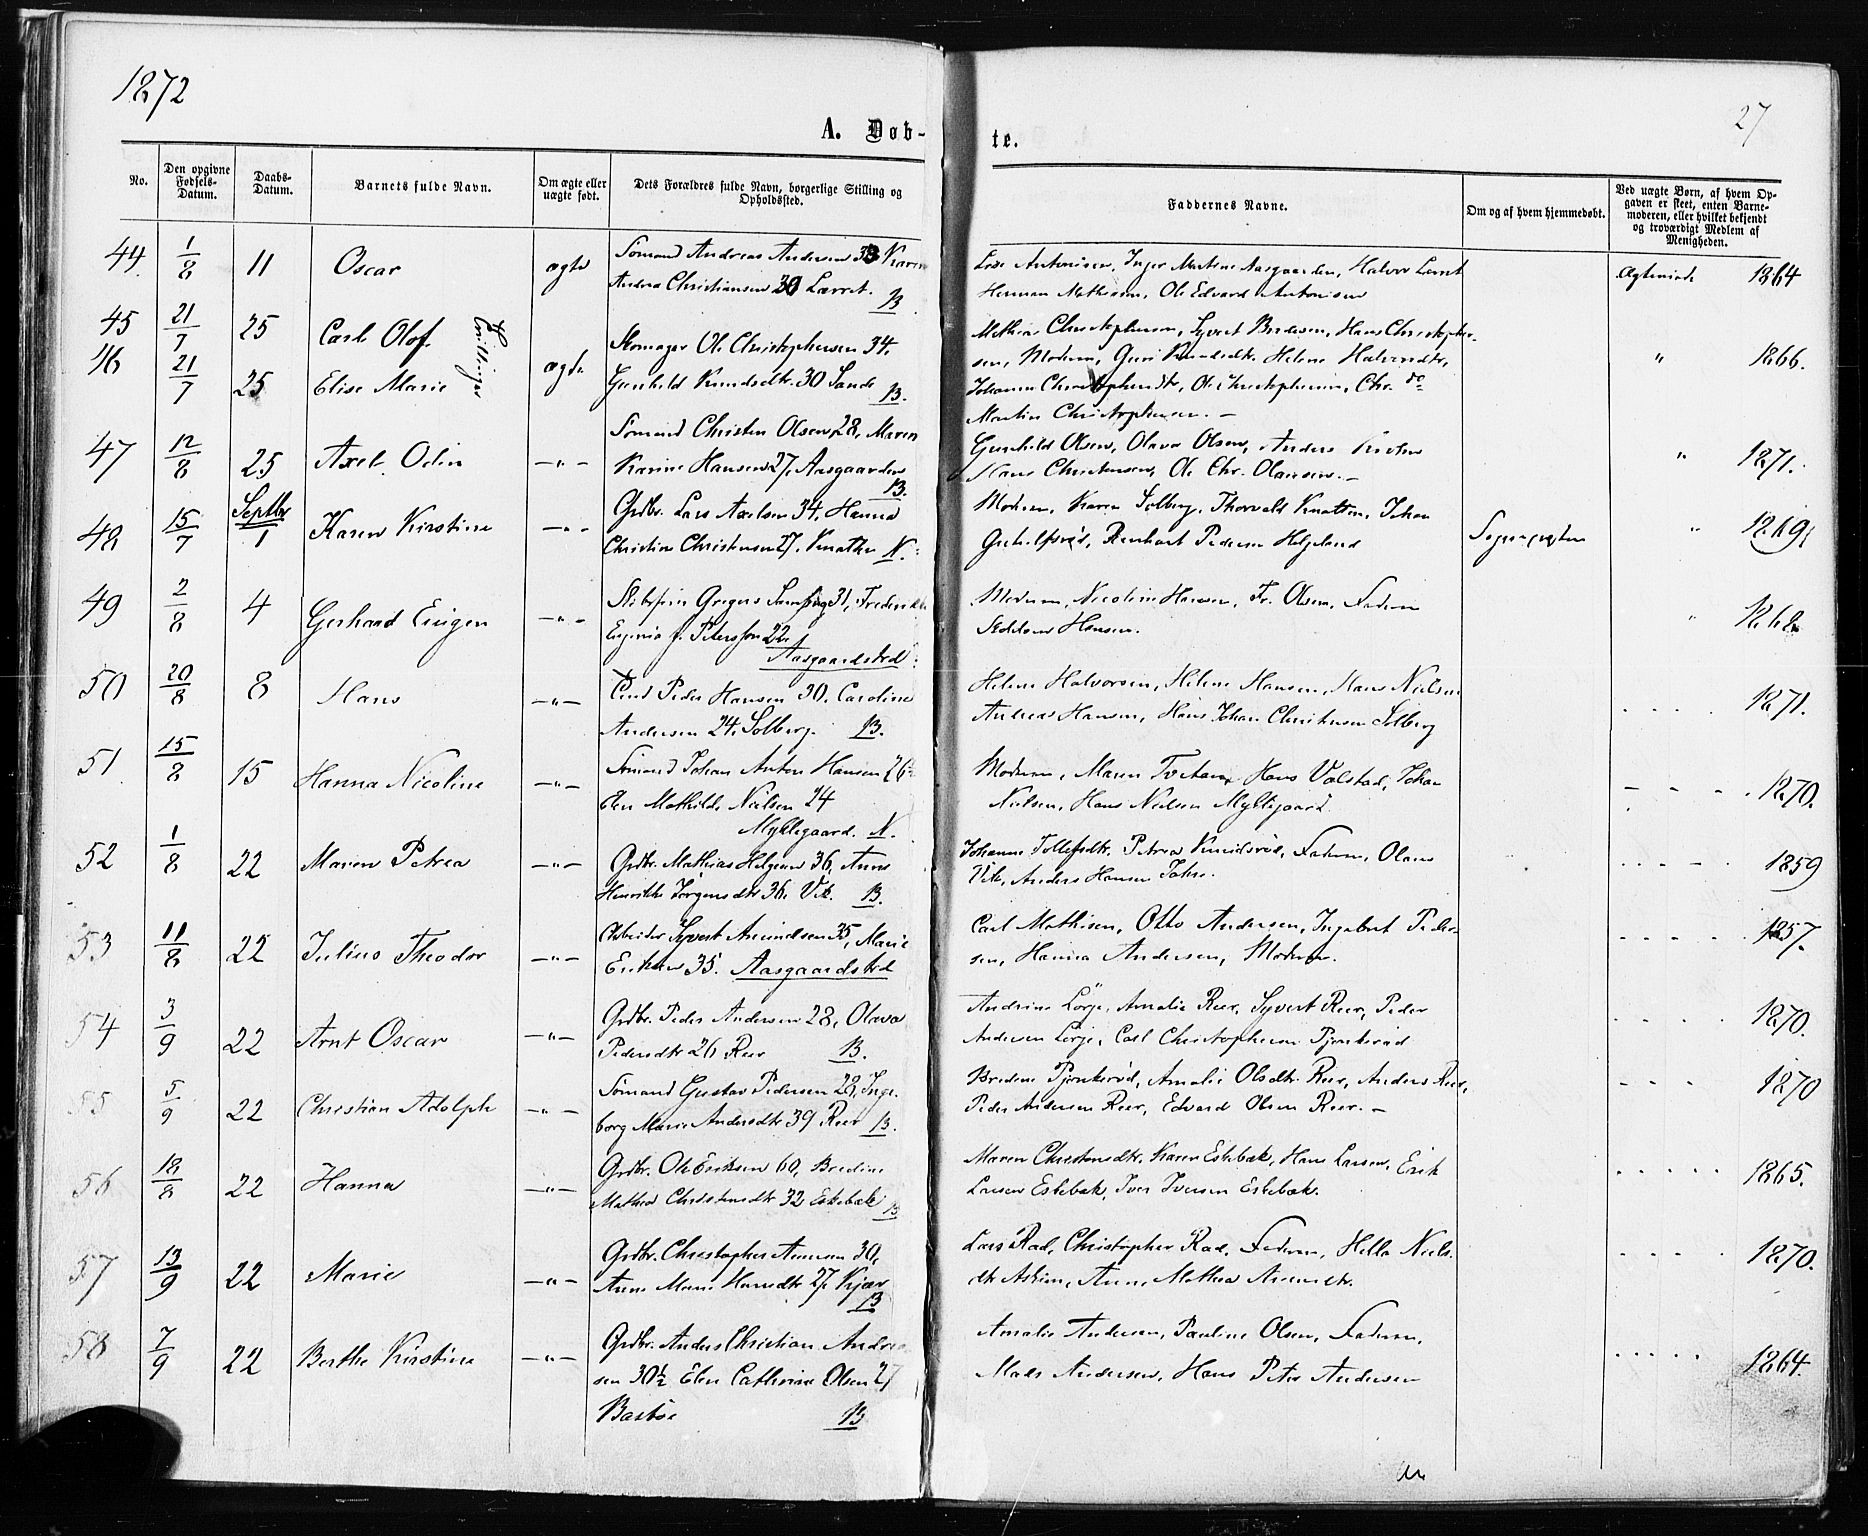 1872
27
A. Døb-
te.
No.
Den opgivne Fødsels-Datum.
Daabs-Datum.
Barnets fulde Navn.
Om ægte eller uægte født.
Dets Forældres fulde Navn, borgerlige Stilling og Opholdssted.
Faddernes Navne.
Om og af hvem hjemmedøbt.
Ved uægte Børn, af hvem Opgaven er skeet, enten Barnemoderen, eller hvilket bekjendt og troværdigt Medlem af Menigheden.
44 1/8 11 Oscar ægte Sømand Andreas Andersen 33 Karen
Andrea Christiansen 30 Lærret. B
Antonisen, Inger Martine Aasgaarden, Halvor
Herman Mathisen, Ole Edvard Antonisen
Ægteviede 1864
45 21/7 25 Carl Olof Tvillinger
46 21/7 25 Elise Marie ægte
Skomager Ole Christophersen 34,
Gunhild Knudsdtr. 30 Sande B.
Mathias Christophersen, Syvert Bredesen, Hans Christopher-
sen, Moderen, Guri Knudsdtr. Helene Halvordtr,
Johanne Christophersdtr, Ole Christophersen, Chr. do
Martin Christophersen. –
" 1866.
47 12/8 25 Axel Odin –"– Sømand Christen Olsen 28, Maren
Karine Hansen 27, Aasgaarden B.
Gunhild Olsen, Olava Olsen, Anders
Hans Christensen, Ole Chr. Olausen. –
" 1871.
48 15/7 Septbr 1 Karen Kirstine –"– Grdbr. Lars Axelsen 34, Hanna
Christine Christensen 27. Knatten N.
Moderen, Karen Solberg, Thorvald Knatten, Johan
Reinhart Pedersen Helgeland
Sognepresten
" 1869
49 2/8 4 Gerhard Eugen –"– Gregers 31, Frederikke
Eugenia f. Petersson 22.
Aasgaardstrd
Moderen, Nicoline Hansen, Fr. Olsen, Faderen
Hansen.
" 1868
50 20/8 8 Hans –"– Peder Hansen 30, Caroline
Andersen 24, Solberg. B.
Helene Halvorsen, Helene Hansen, Hans Nielsen
Andreas Hansen, Hans Johan Christensen Solberg
1871.
51 15/8 15 Hanna Nicoline –"– Sømand Johan Anton Hansen 26
Elen Mathilde Nielsen 24
Myklegaard. N.
Moderen, Maren Hans Valstad, Johan
Nielsen, Hans Nielsen Myklegaard.
1870.
52 1/8 22 Maren Petrea –"– Grdbr. Mathias Helgesen 36, Anne
Henrikke Jørgensdtr 36, Vik. B.
Johanne Tollefsdtr. Petrea Knudsrød, Faderen, Olaus
Vik, Anders Hansen Jahre.
1859
53 11/8 22 Julius Theodor –"– Arbeider Syvert Amundsen 35, Marie
Eriksen 35. Aasgaardstrd
Carl Mathisen, Otto Andersen, Ingebret Peder-
sen, Hanna Andersen, Moderen.
1857.
54 3/9 22 Arnt Oscar –"– Grdbr. Peder Andersen 28, Olava
Pedersdtr 26 Reer B.
Andrine Lørje, Amalie Reer, Syvert Reer, Peder
Andersen Lørje, Carl Christophersen Pjonkerød
1870.
55 5/9 22 Christian Adolph –"– Sømand Gustav Pedersen 28, Inge-
borg Marie Andersdtr 39 Reer B.
Bredine Pjonkerød, Amalie Olsdtr. Reer, Anders Reer,
Peder Andersen Reer, Edvard Olsen Reer. –
1870
56 18/8 22 Hanna –"– Grdbr. Ole Eriksen 60, Bredine
Mathea Christensdtr 32 Eskebæk B
Maren Christensdtr. Karen Eskebæk, Hans Larsen, Erik
Larsen Eskebæk, Iver Iversen Eskebæk.
1865.
57 13/9 22 Marie –"– Grdbr. Christopher 30,
Anne Marie Hansdtr 27, Kjær B
Lars Rad, Christopher Rad, Faderen, Helle Niels-
dtr Askim, Anne Mathea
1870.
58 7/9 22 Berthe Kirstine –"– Grdbr. Anders Christian Andrea-
sen 30½ Elen Cathrine Olsen 27
Bastøe B
Amalie Andersen, Pauline Olsen, Faderen,
Mads Andersen, Hans Peter Andersen
1864.